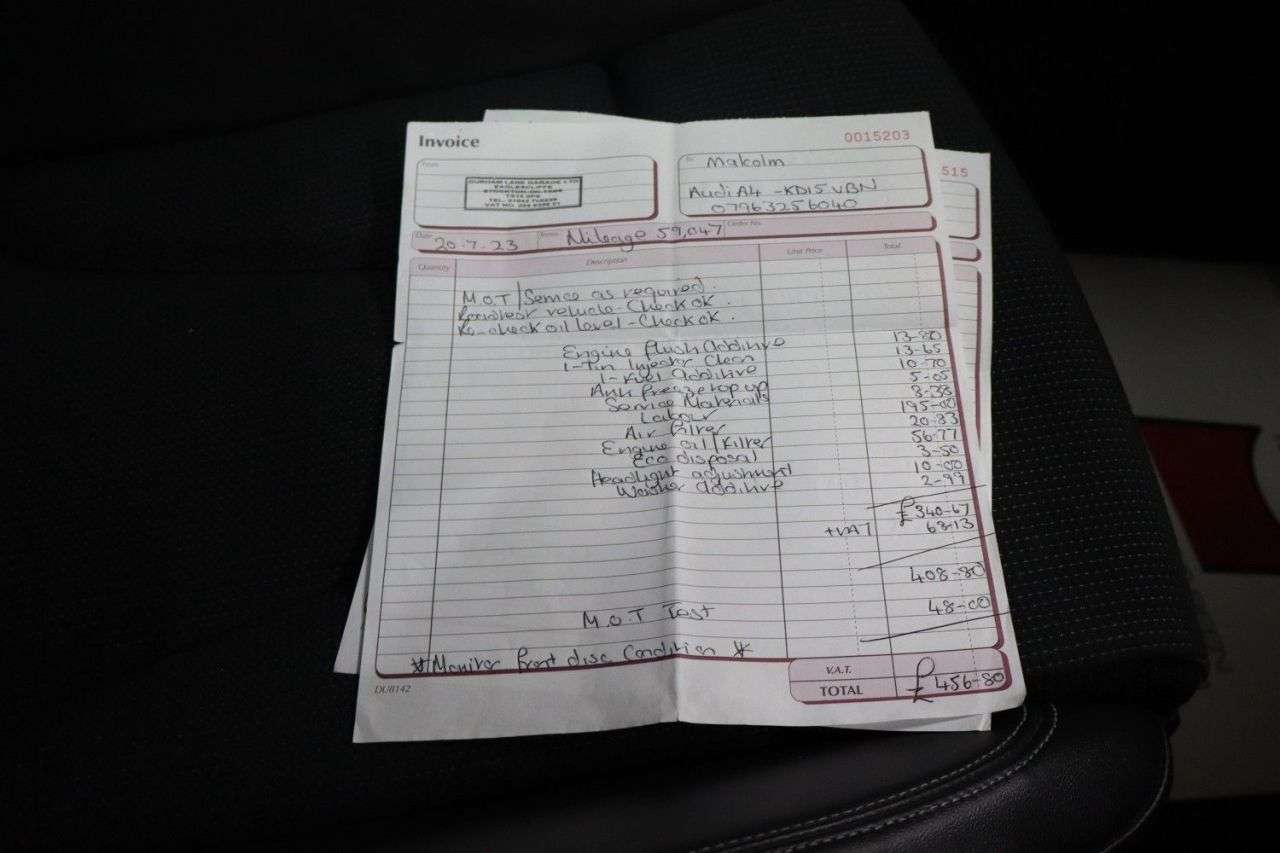 Invoice
0015203
515
From
DURHAM LANE GARAGE LTD
EAGLESCLIFFE
STOCKTON-ON-TEES
VAT NO.
To
Malcolm
Audi A4 - KD15 VBN
07963256040
Date 20.7.23 Mileage 59,047 Order No.
Quantity Description Unit Price Total
M.O.T/Service as required.
vehicle - Check ok.
Re-check oil level - Check ok.
Engine flush additive 13-80
1-Tin Injector Clean 13-65
1-Fuel additive 10-70
Anti freeze top up 5-05
Service Materials 8-38
Labour 195-00
Air Filter 20-83
Engine oil/filter 56-77
Eco disposal 3-50
Headlight adjustment 10-00
Washer additive 2-99
£340-67
+VAT 68-13
408-80
M.O.T Test 48-00
*Monitor front disc Condition *
V.A.T.
TOTAL £456-80
DU8142